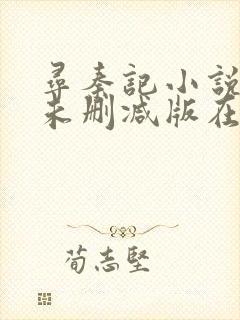 尋秦記小說
未刪減版在
荀志堅